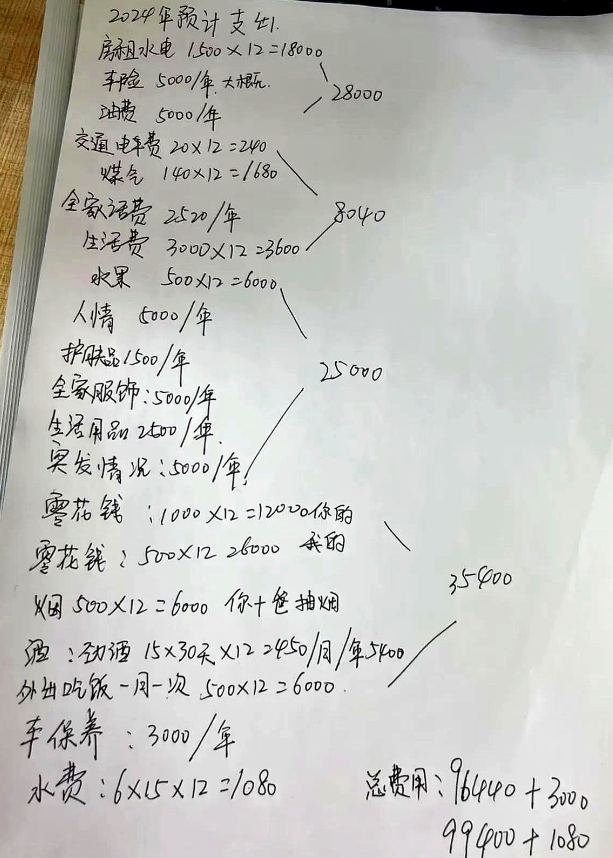 2024年预计支出
房租水电 1500×12=18000
车险 5000/年 大概
油费 5000/年
28000
交通电车费 20×12=240
煤气 140×12=1680
全家话费 2520/年
生活费 3000×12=3600
8040
水果 500×12=6000
人情 5000/年
护肤品1500/年
全家服饰:5000/年
生活用品 2500/年
突发情况:5000/年
25000
零花钱:1000×12=12000你的
零花钱:500×12=6000 我的
烟 500×12=6000 你+爸抽烟
酒:劲酒 15×30天×12=450/月/年5400
外出吃饭一月一次 500×12=6000
35400
车保养:3000/年
水费:6×15×12=1080
总费用:96440+3000
99400+1080